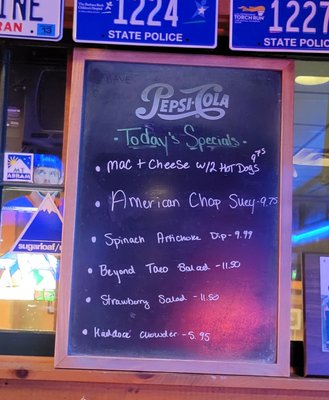 INE
RAN 13
1224
STATE POLICE
TORCH RUN
1227
STATE
PEPSI-COLA
- Today's Specials -
• Mac + Cheese w/2 HOT DOGS 9.75
• American Chop Suey - 9.75
• Spinach Artichoke Dip - 9.99
• Beyond Taco Salad - 11.50
• Strawberry Salad - 11.50
• Haddock Chowder - 5.95
MT ABRAM
sugarloaf